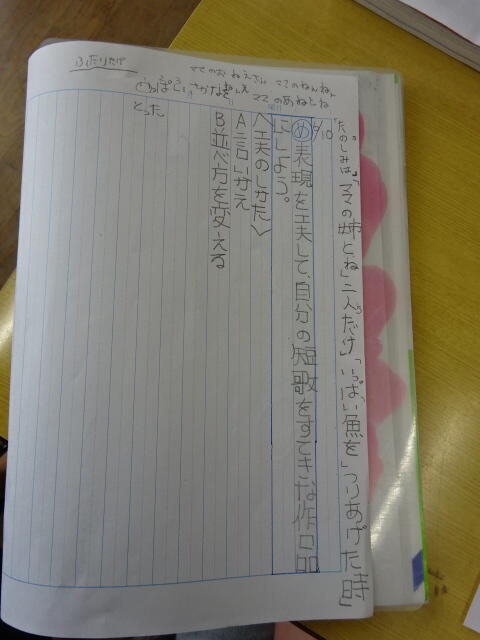 たのしみは「ママの姉とね」二人だけ「いっぱい魚を」つりあげた時」
6/10
め 表現を工夫して、自分の短歌をすてきな作品
にしよう。
〈工夫のしかた〉
A言いかえ
B並べ方を変える
ふたりだけ
ママのねんねん
ママのあねとね
とった